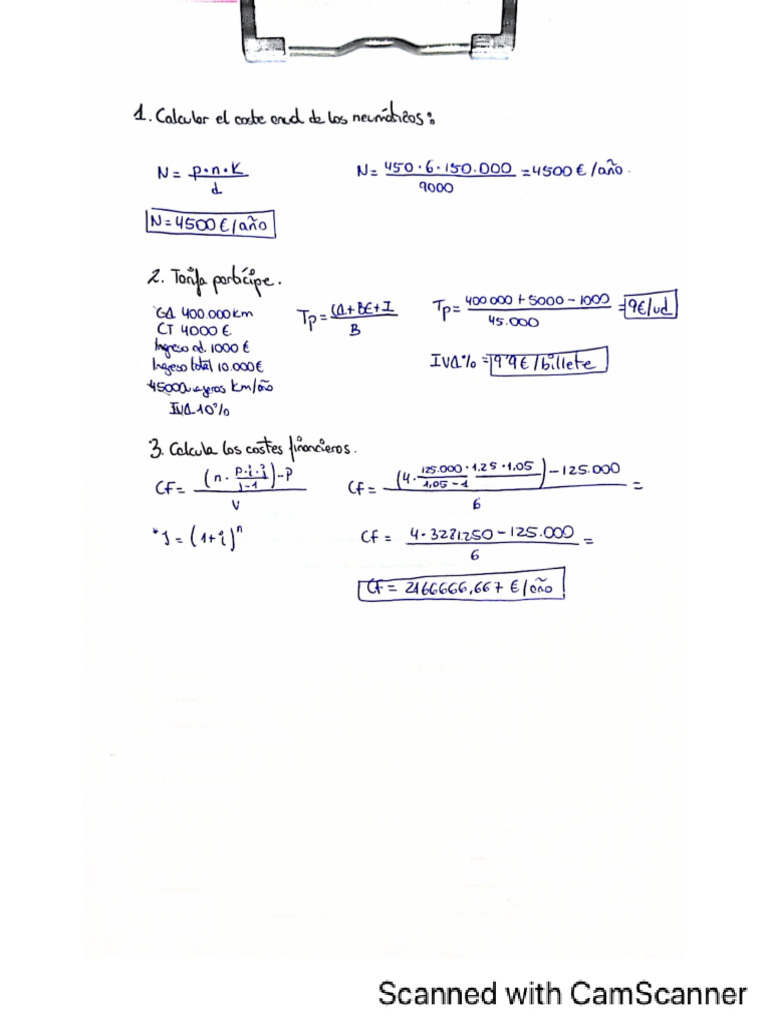 1. Calcular el coste anual de los neumáticos:
N = p·n·K / d
N = 450·6·150.000 / 9000 = 4500 € / año.
N = 4500 € / año
2. Tarifa partícipe.
CA 400.000 km
CT 4000 €
Ingreso ad. 1000 €
Ingreso total 10.000 €
45000 viajeros km/año
IVA 10%
Tp = CA + BE + I / B
Tp = 400 000 + 5000 - 1000 / 45.000 = 9€/ud
IVA% = 9'9 € / billete
3. Calcula los costes financieros.
CF = (n · p·i·j / j-1) - P / V
* J = (1+i)ⁿ
Cf = (4 · 125.000 · 1,25 · 1,05 / 1,05 - 1) - 125.000 / 6 =
Cf = 4 · 3281250 - 125.000 / 6 =
CF = 2166666,667 € / año
Scanned with CamScanner